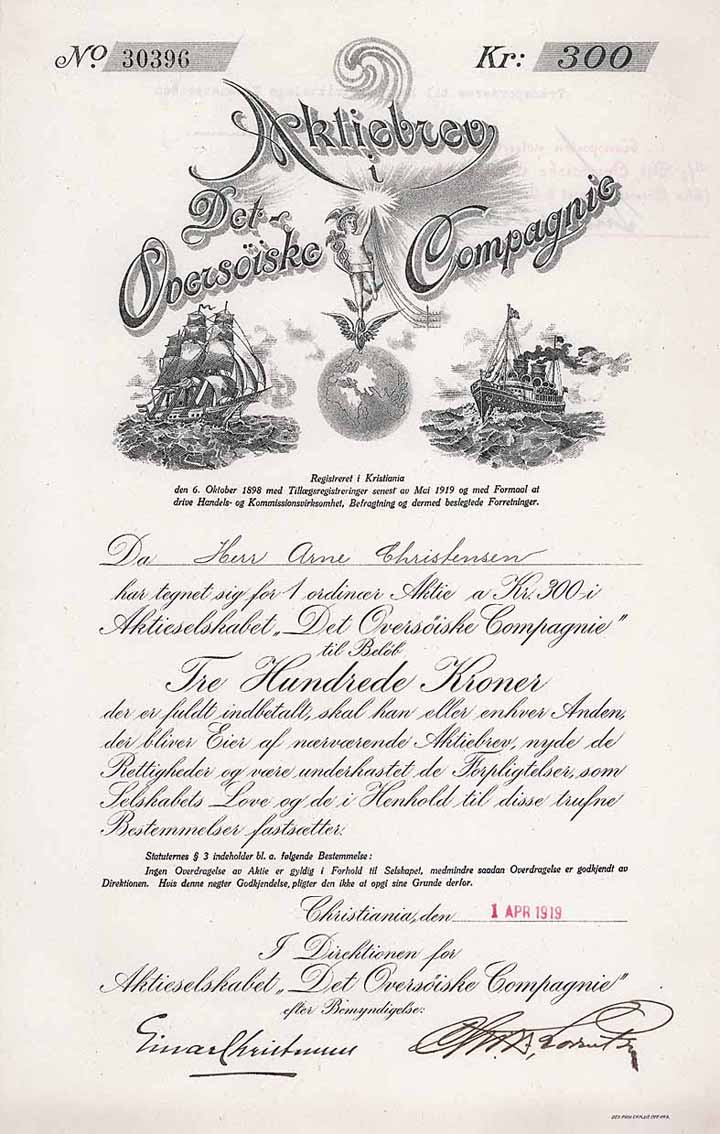 No 30396
Kr: 300
Aktiebrev
i
Det
Oversöiske Compagnie
Registreret i Kristiania
den 6. Oktober 1898 med Tillægsregistreringer senest av Mai 1919 og med Formaal at
drive Handels- og Kommissionsvirksomhet, Befragtning og dermed beslegtede Forretninger.
Da Herr Arne Christensen
har tegnet sig for 1 ordinær Aktie a Kr. 300 i
Aktieselskabet „Det Oversöiske Compagnie"
til Belöb
Tre Hundrede Kroner
der er fuldt indbetalt, skal han eller enhver Anden,
der bliver Eier af nærværende Aktiebrev, nyde de
Rettigheder og være underkastet de Forpligtelser, som
Selskabets Love og de i Henhold til disse trufne
Bestemmelser fastsætter.
Statuternes § 3 indeholder bl. a. følgende Bestemmelse:
Ingen Overdragelse av Aktie er gyldig i Forhold til Selskapet, medmindre saadan Overdragelse er godkjendt av
Direktionen. Hvis denne negter Godkjendelse, pligter den ikke at opgi sine Grunde derfor.
Christiania, den 1 APR 1919
I Direktionen for
Aktieselskabet „Det Oversöiske Compagnie"
efter Bemyndigelse:
Einar Christensen